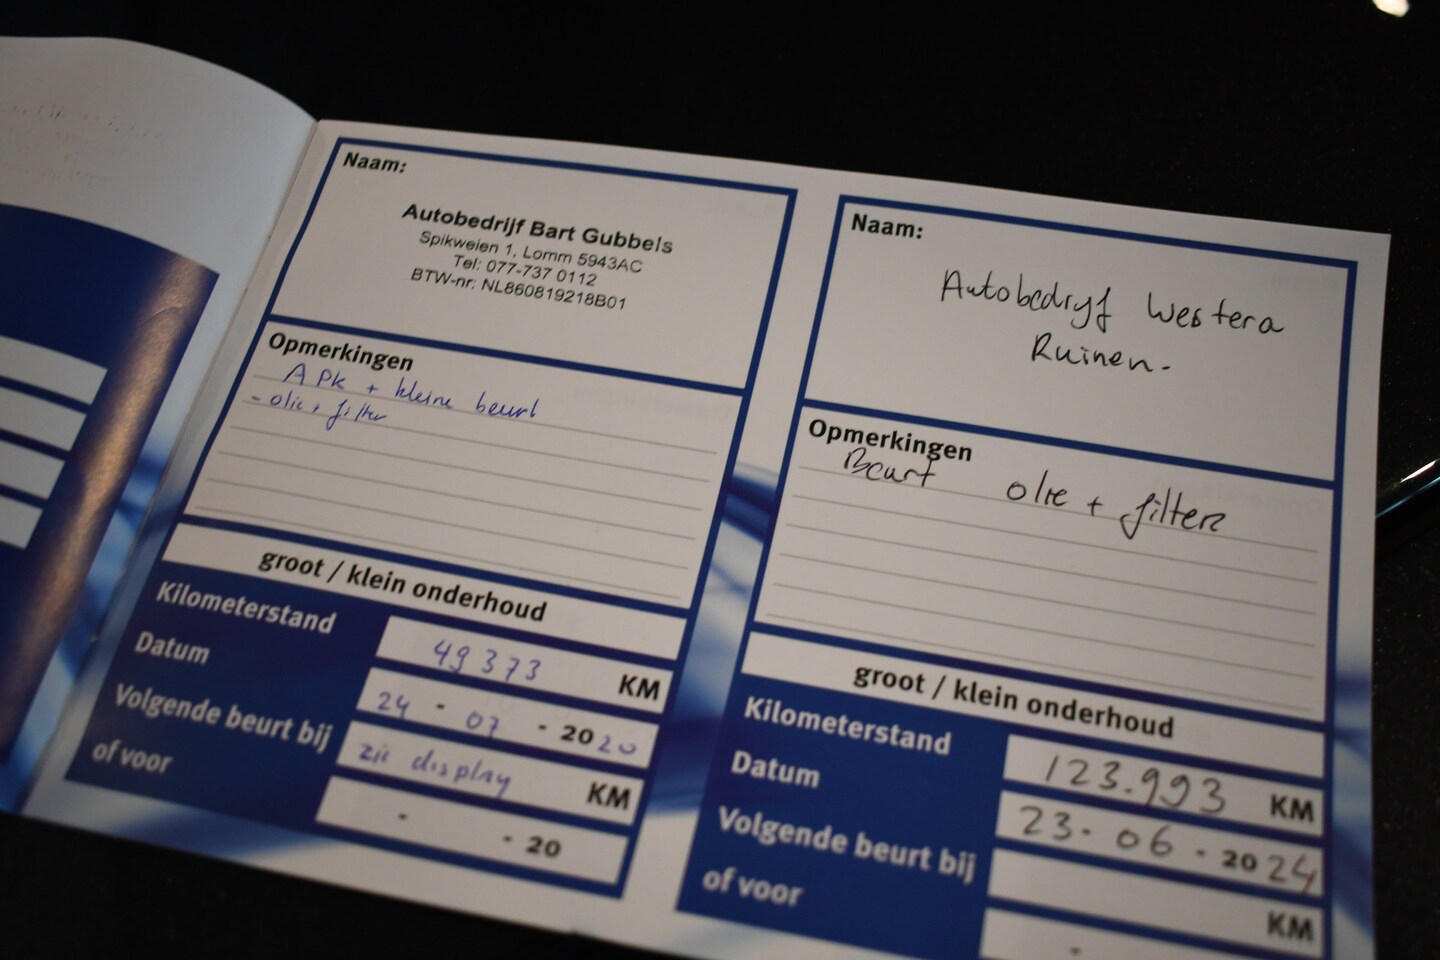 Naam:
Autobedrijf Bart Gubbels
Spikweien 1, Lomm 5943AC
Tel: 077-737 0112
BTW-nr: NL860819218B01
Opmerkingen
APK + kleine beurt
- olie + filter
groot / klein onderhoud
Kilometerstand 49373 KM
Datum 24 - 07 - 2020
Volgende beurt bij zie display KM
of voor - - 20
Naam:
Autobedrijf Westera
Ruinen.
Opmerkingen
Beurt olie + filter
groot / klein onderhoud
Kilometerstand 123.993 KM
Datum 23 - 06 - 2024
Volgende beurt bij KM
of voor -